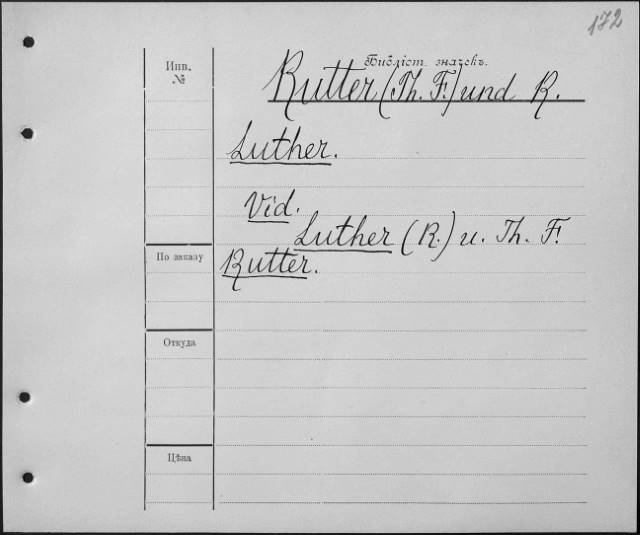 172
Библіот. значекъ.
Инв.
№
Rutter (Th. F.) und R.
Luther.
Vid.
Luther (R.) u. Th. F.
Rutter.
По заказу
Откуда
Цѣна